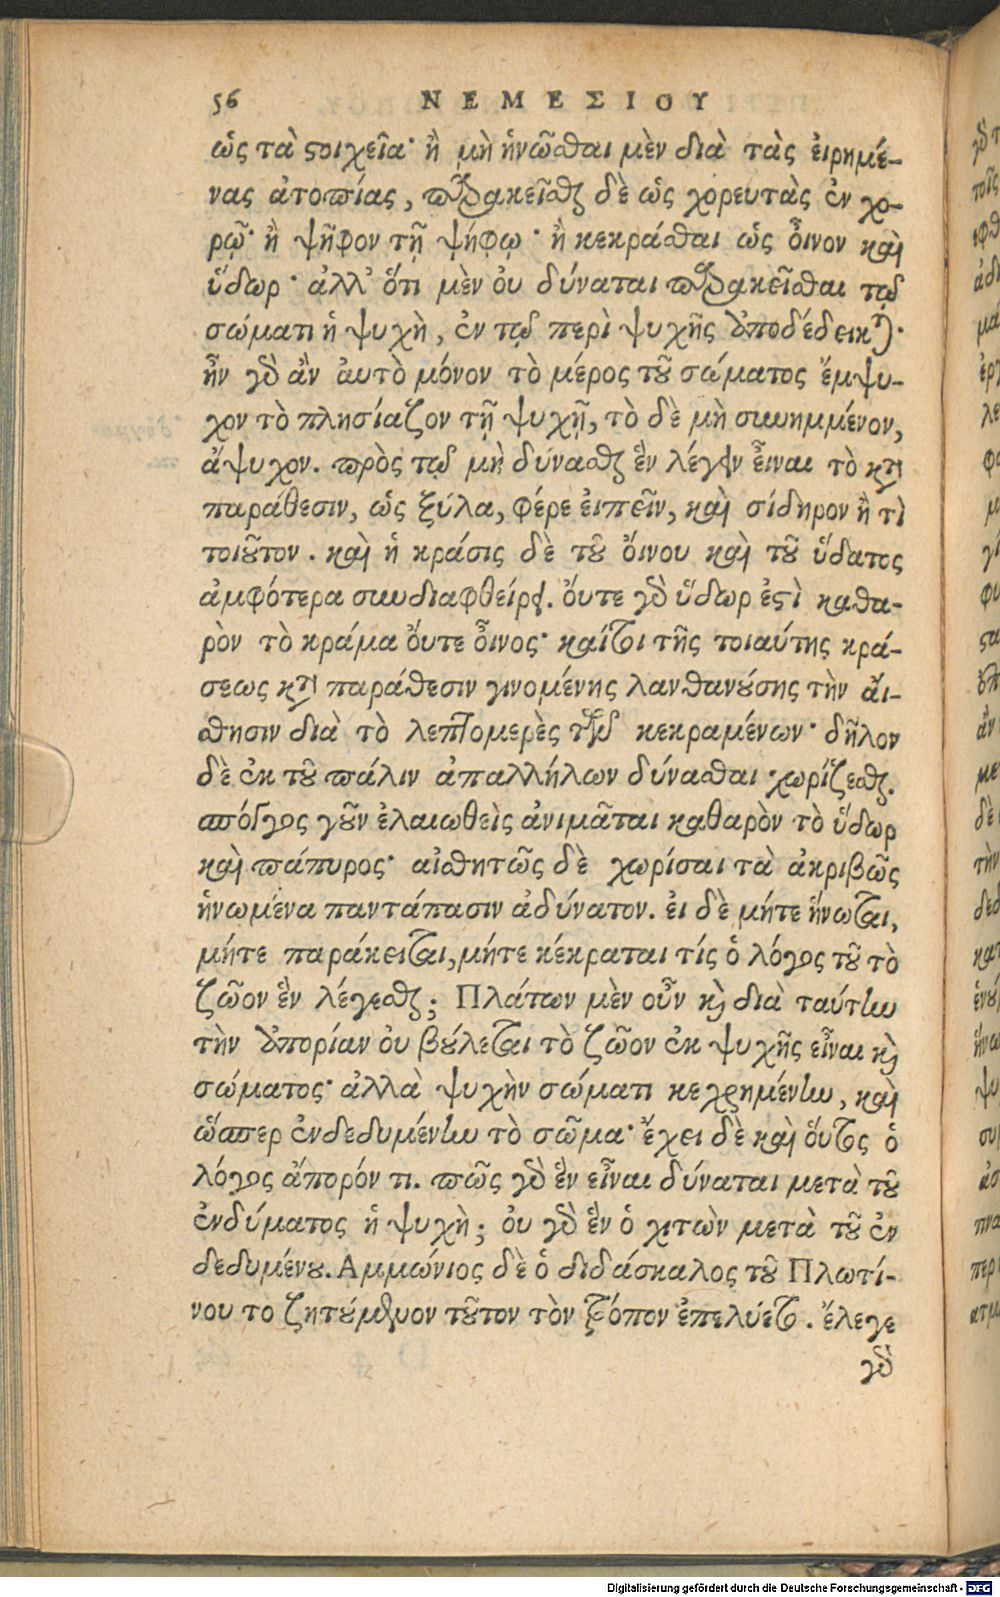 56 ΝΕΜΕΣΙΟΥ
ὡς τὰ ϛοιχεῖα· ἢ μὴ ἡνῶσθαι μὲν διὰ τὰς ἐιρημέ-
νας ἀτοπίας, παρακεῖσθαι δὲ ὡς χορευτὰς ἐν χο-
ρῷ· ἢ ψῆφον τῇ ψήφῳ· ἢ κεκράσθαι ὡς ὀῖνον καὶ
ὕδωρ· ἀλλ' ὅτι μὲν ὀυ δύναται παρακεῖσθαι τῷ
σώματι ἡ ψυχὴ, ἐν τῷ περὶ ψυχῆς ὑποδέδεικται·
ἦν γὰρ ἂν ἀυτὸ μόνον τὸ μέρος τοῦ σώματος ἔμψυ-
χον τὸ πλησίαζον τῇ ψυχῇ, τὸ δὲ μὴ συνημμένον,
ἄψυχον. πρὸς τῷ μὴ δύνασθαι ἓν λέγειν ἐῖναι τὸ κατὰ
παράθεσιν, ὡς ξύλα, φέρε ἐιπεῖν, καὶ σίδηρον ἢ τὶ
τοιοῦτον. καὶ ἡ κράσις δὲ τοῦ ὄινου καὶ τοῦ ὕδατος
ἀμφότερα συνδιαφθείρει. ὄυτε γὰρ ὕδωρ ἐϛὶ καθα-
ρὸν τὸ κράμα ὄυτε ὀῖνος· καίτοι τῆς τοιαύτης κρά-
σεως κατὰ παράθεσιν γινομένης λανθανούσης τὴν ἄι-
σθησιν διὰ τὸ λεπτομερὲς τῶν κεκραμένων· δῆλον
δὲ ἐκ τοῦ πάλιν ἀπαλλήλων δύνασθαι χωρίζεσθαι.
σπόγγος γοῦν ἐλαιωθεὶς ἀνιμᾶται καθαρὸν τὸ ὕδωρ
καὶ πάπυρος· αἰσθητῶς δὲ χωρίσαι τὰ ἀκριβῶς
ἡνωμένα παντάπασιν ἀδύνατον. ἐι δὲ μήτε ἥνωται,
μήτε παράκειται, μήτε κέκραται τίς ὁ λόγος τοῦ τὸ
ζῶον ἓν λέγεσθαι; Πλάτων μὲν οὖν καὶ διὰ ταύτην
τὴν ἀπορίαν ὀυ βούλεται τὸ ζῶον ἐκ ψυχῆς εἶναι καὶ
σώματος· ἀλλὰ ψυχὴν σώματι κεχρημένην, καὶ
ὥσπερ ἐνδεδυμένην τὸ σῶμα· ἔχει δὲ καὶ ὅυτος ὁ
λόγος ἄπορόν τι. πῶς γὰρ ἓν εἶναι δύναται μετὰ τοῦ
ἐνδύματος ἡ ψυχὴ; ὀυ γὰρ ἓν ὁ χιτὼν μετὰ τοῦ ἐν
δεδυμένου. Αμμώνιος δὲ ὁ διδάσκαλος τοῦ Πλωτί-
νου το ζητούμενον τοῦτον τὸν τρόπον ἐπελύετο. ἔλεγε
γὰρ
Digitalisierung gefördert durch die Deutsche Forschungsgemeinschaft - DFG